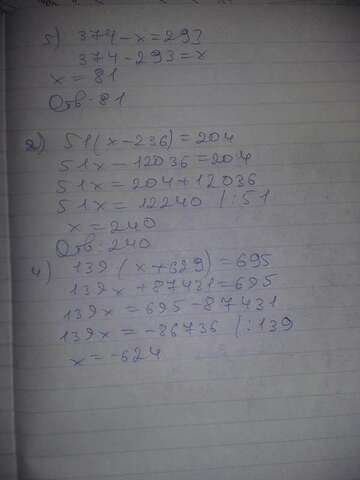 5) 374 - x = 293
374 - 293 = x
x = 81
Отв: 81
2) 51(x - 236) = 204
51x - 12036 = 204
51x = 204 + 12036
51x = 12240 /:51
x = 240
Отв: 240
4) 139 (x + 629) = 695
139x + 87431 = 695
139x = 695 - 87431
139x = -86736 /:139
x = -624